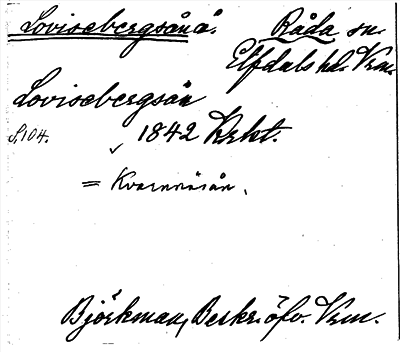 Lovisebergsån å. Råda sn.
Elfdals hd. Vrm.
Lovisebergsån
S. 104. 1842 Vrkt.
= Kvarnåsån.
Björkman, Beskriöfv. Vrm.